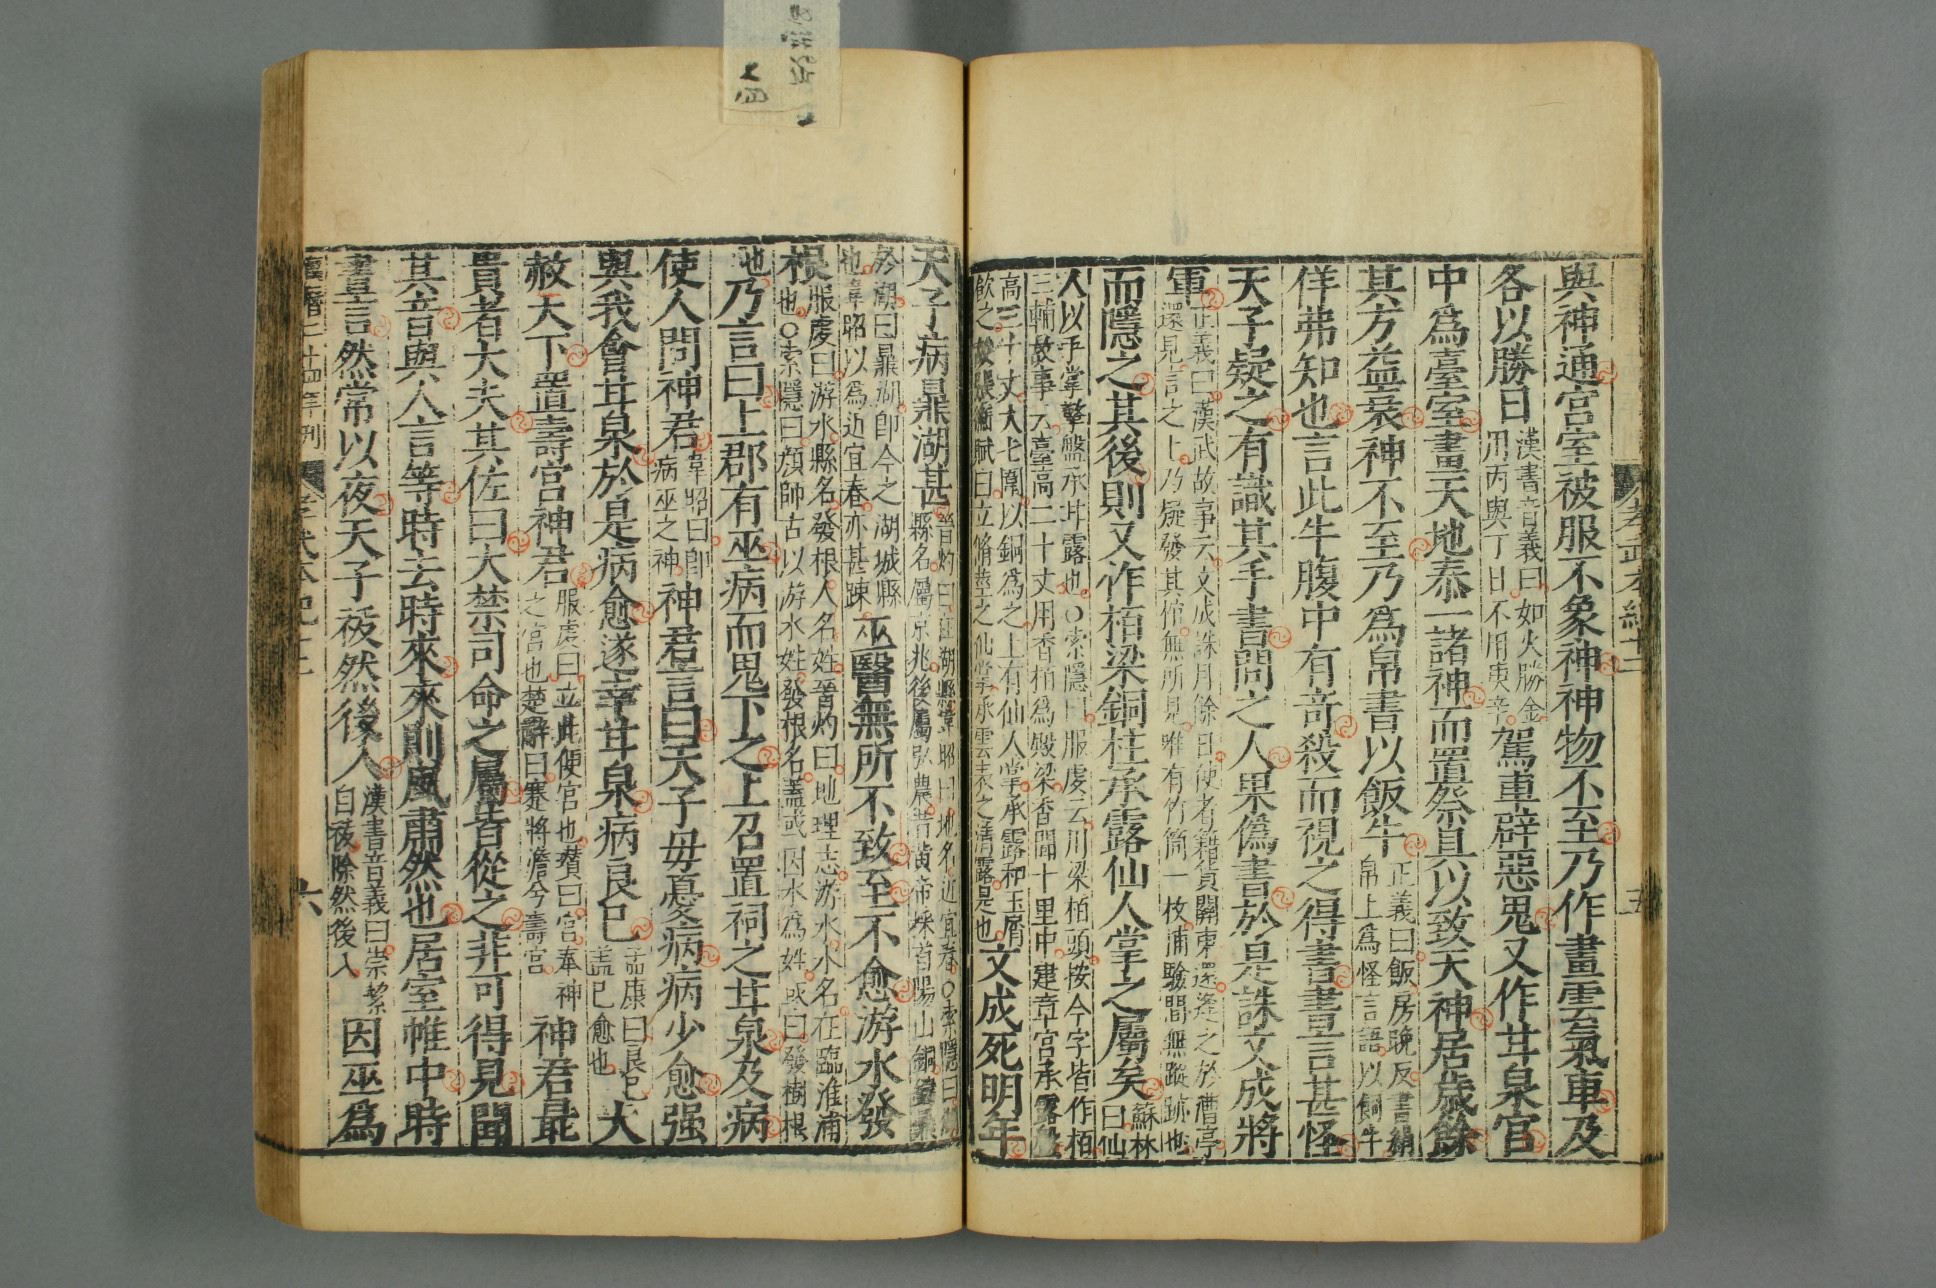 與神通宮室被服不象神神物不至乃作畫雲氣車及
各以勝日漢書音義曰如火勝金用丙與丁日不用庚辛駕車辟惡鬼又作甘泉宮
中爲臺室畫天地泰一諸神而置祭具以致天神居歲餘
其方益衰神不至乃爲帛書以飯牛正義曰飯房晚反書絹帛上爲怪言語以飼牛
佯弗知也言此牛腹中有奇殺而視之得書書言甚怪
天子疑之有識其手書問之人果僞書於是誅文成將
軍正義曰漢武故事云文成誅月餘日使者籍貨關東還逢之於漕亭還見言之上乃疑發其棺無所見唯有竹筒一枚捕驗間無蹤跡也
而隱之其後則又作栢梁銅柱承露仙人掌之屬矣蘇林曰仙
人以手掌擎盤承甘露也○索隱曰服虔云用梁栢頭按今字皆作栢三輔故事云臺高二十丈用香栢爲殿梁香聞十里中建章宮承露盤
高三十丈大七圍以銅爲之上有仙人掌承露和玉屑飲之故張衡賦曰立脩莖之仙掌承雲表之清露是也文成死明年
天子病鼎湖甚晉灼曰在湖縣韋昭曰地名近宜春○索隱曰湖縣名屬京兆後屬弘農昔黃帝採首陽山銅鑄鼎
於湖曰鼎湖卽今之湖城縣也韋昭以爲近宜春亦甚疎巫醫無所不致至不愈游水發
根服虔曰游水縣名發根人名姓晉灼曰地理志游水水名在臨淮浦也○索隱曰顏師古以游水姓發根名蓋或因水爲姓或曰發樹根
也乃言曰上郡有巫病而鬼下之上召置祠之甘泉及病
使人問神君韋昭曰卽病巫之神神君言曰天子毋憂病病少愈强
與我會甘泉於是病愈遂幸甘泉病良已孟康曰良已善已愈也大
赦天下置壽宮神君服虔曰立此便宮也瓚曰宮奉神之宮也楚辭曰蹇將憺兮壽宮神君最
貴者大夫其佐曰大禁司命之屬皆從之非可得見聞
其音與人言等時去時來來則風肅然也居室帷中時
晝言然常以夜天子祓然後入漢書音義曰崇絜自祓除然後入因巫爲
孝武本紀十二
五
孝武本紀十二
六